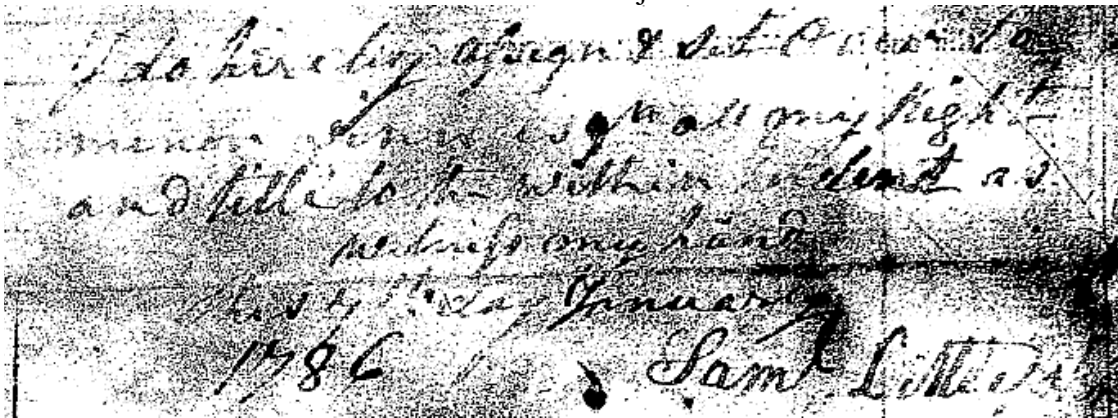 I do here by assign & set over to
all my Right
and title to the within as
witness my hand
this day January
1786 Saml